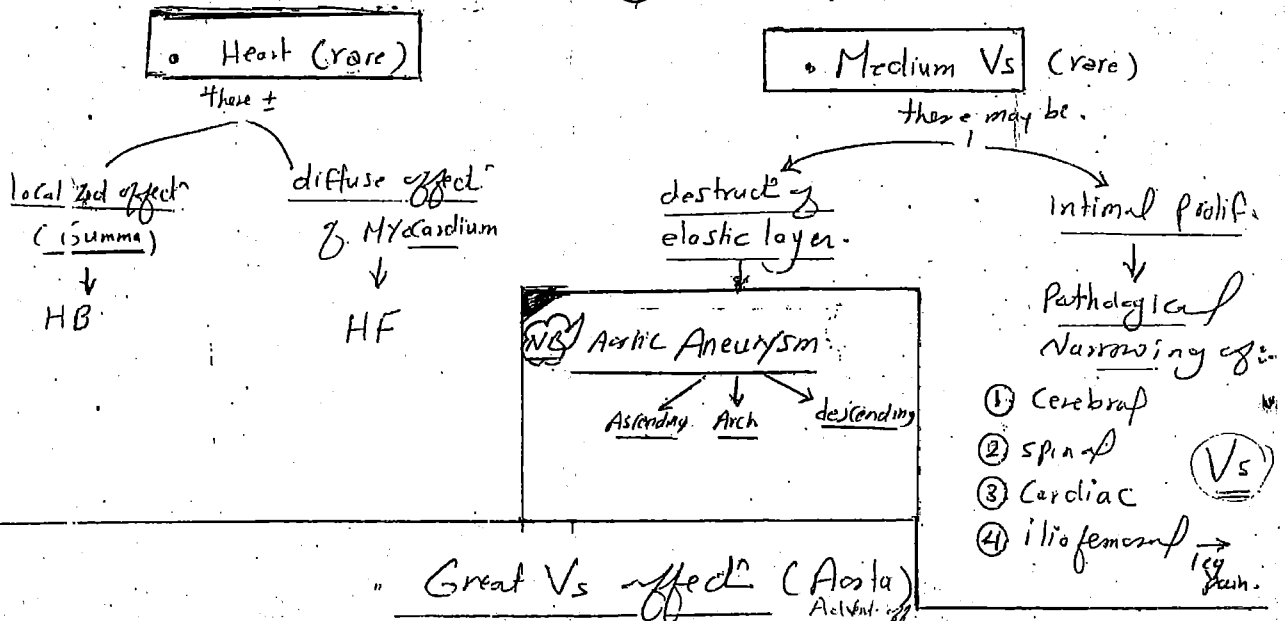 • Heart (rare)
there ±
localized affectⁿ
(Gumma)
↓
HB
diffuse affectⁿ
of Myocardium
↓
HF
• Medium Vs (rare)
there may be.
destructⁿ of
elastic layer.
↓
NB Aortic Aneurysm
Ascending Arch descending
Intimal Prolif.
↓
Pathological
Narrowing of:
① Cerebral
② spinal
③ Cardiac
④ iliofemoral → leg
pain.
Vs
Great Vs affectⁿ (Aorta)